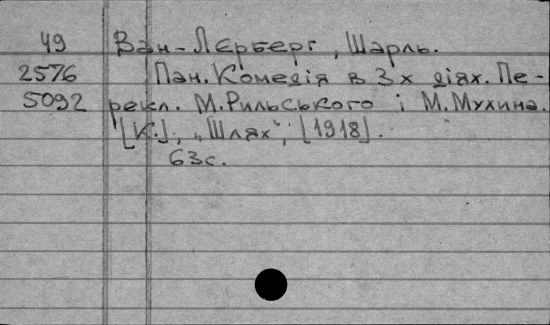 49 Ван-Лєрберг, Шарль.
2576 Пан. Комедія в 3х діях. Пе-
5092 рекл. М. Рильського і М. Мухина.
[К.], „Шлях“, [1918].
63с.